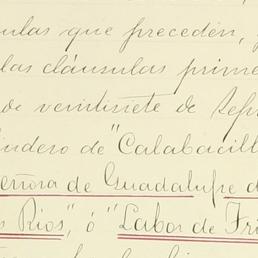 ulas que preceden,
las cláusulas prime
de veintisiete de Sep
indero de "Calabacill
eñora de Guadalupe d
s Rios", ó "Labor de Fri